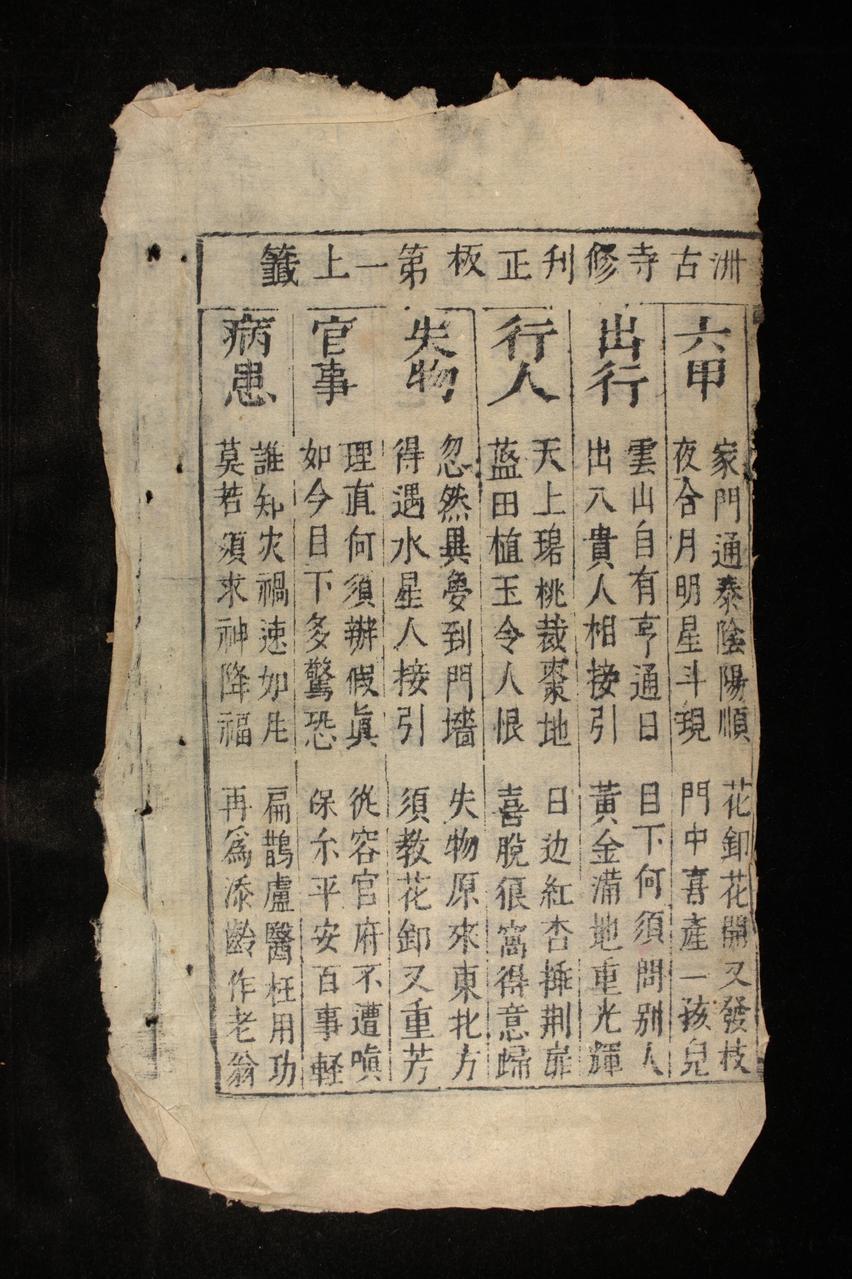 洲古寺修刋正板第一上籤
六甲
家門通泰陰陽順 花卸花開又發枝
夜合月明星斗現 門中喜產一孩兒
出行
雲山自有亨通日 目下何須問別人
出入貴人相接引 黃金滿地重光輝
行人
天上碧桃裁棗地 日边紅杏捶荆扉
藍田植玉令人恨 喜脫很窩得意歸
失物
忽然異夢到門墻 失物原來東北方
得遇水星人接引 須教花卸又重芳
官事
理直何須辦假眞 從容官府不遭嗔
如今目下多驚恐 保尒平安百事軽
病患
誰知灾禍速如此 扁鵲盧醫枉用功
莫若須求神降福 再爲添齡作老翁